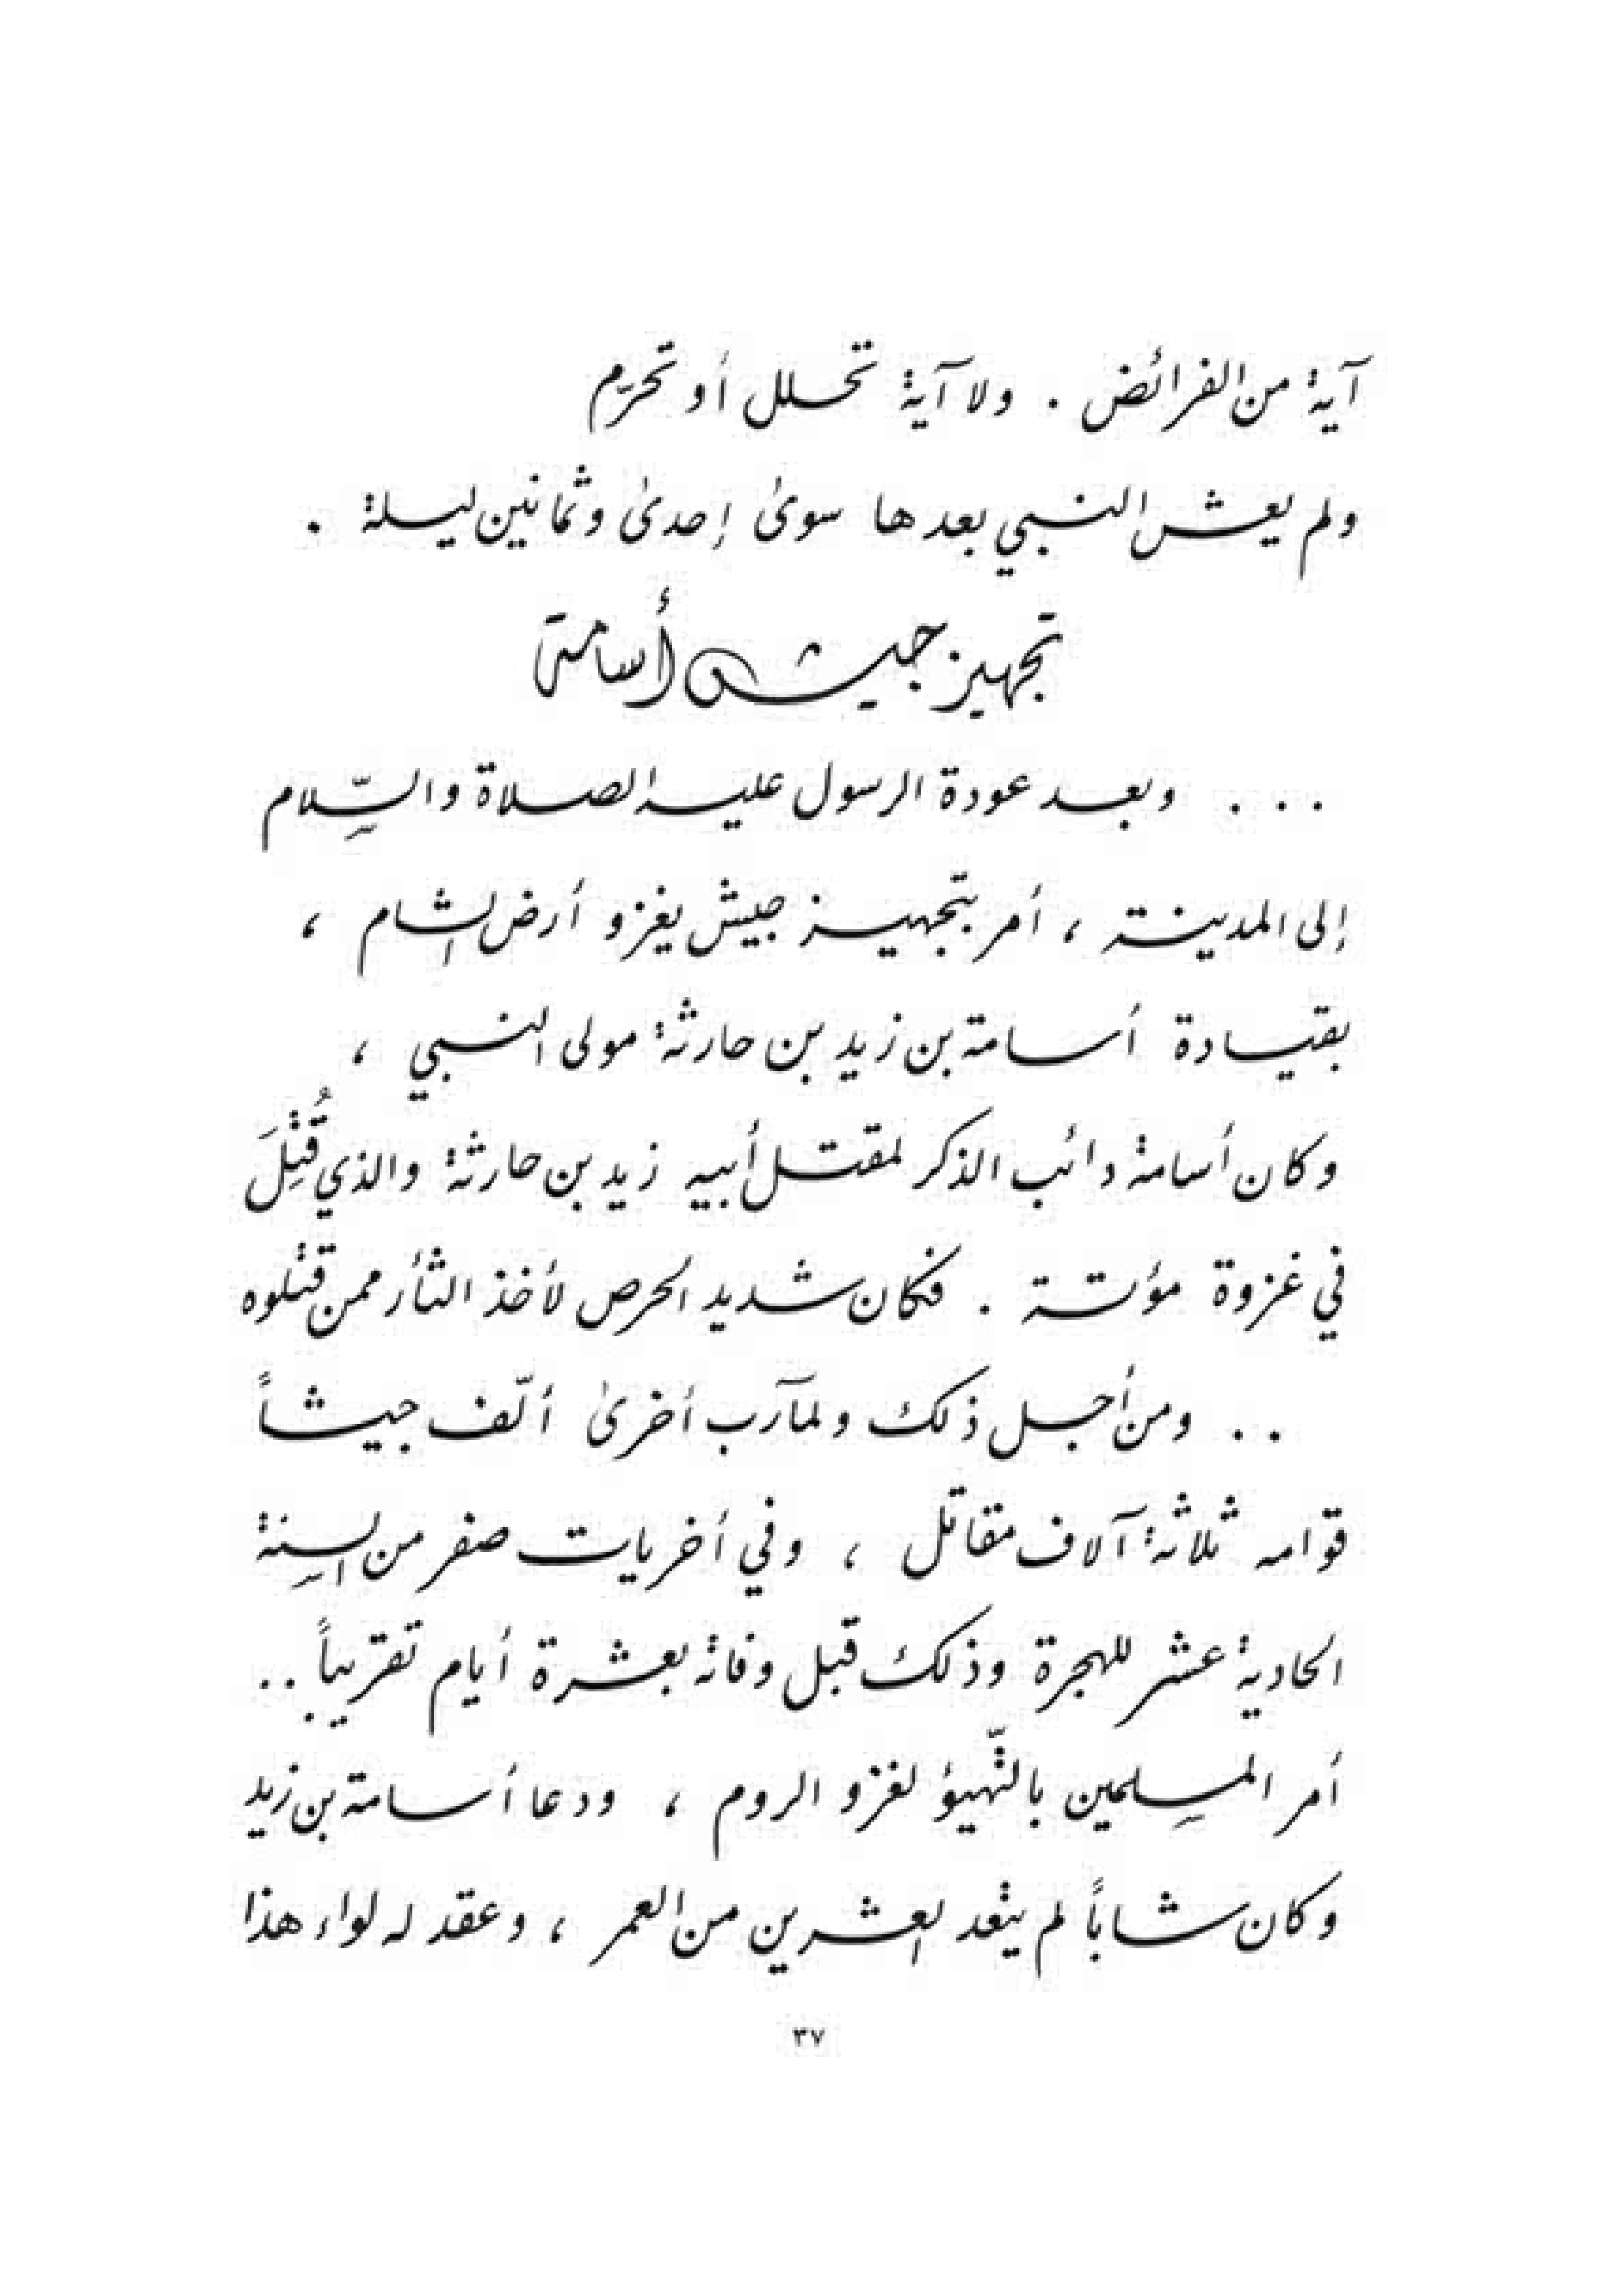 آية من الفرائض . ولا آية تحلل أو تحرّم
ولم يعش النبي بعدها سوىٰ إحدىٰ وثمانين ليلة .
تجهيز جيش أسامة
. . . وبعد عودة الرسول عليه الصلاة والسّلام
إلى المدينة ، أمر بتجهيز جيش يغزو أرض الشام ،
بقيادة أسامة بن زيد بن حارثة مولى النبي ،
وكان أسامة دائب الذكر لمقتل أبيه زيد بن حارثة والذي قُتِلَ
في غزوة مؤتة . فكان شديد الحرص لأخذ الثأر ممن قتلوه
. . ومن أجل ذلك ولمآرب أخرىٰ ألّف جيشاً
قوامه ثلاثة آلاف مقاتل ، وفي أخريات صفر من السنة
الحادية عشر للهجرة وذلك قبل وفاته بعشرة أيام تقريباً ..
أمر المسلمين بالتّهيؤ لغزو الروم ، ودعا أسامة بن زيد
وكان شاباً لم يتعد العشرين من العمر ، وعقد له لواء هذا
٣٧